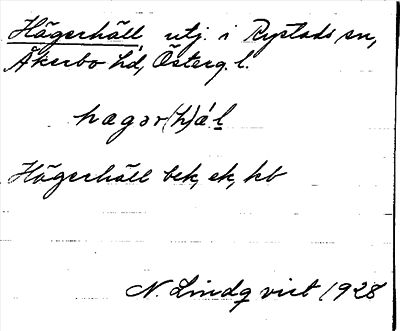 Hägerhäll utj. i Rystads sn,
Åkerbo hd, Österg. l.
hagər(h)ál
Hägerhäll bek, ek, kb
N. Lindqvist 1928